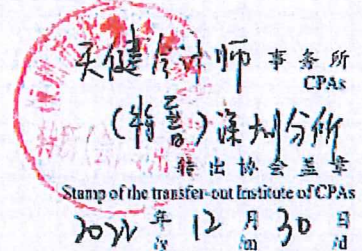 天健会计师事务所
CPAs
(特普)深圳分所
转出协会盖章
Stamp of the transfer-out Institute of CPAs
2022年12月30日
/y /m /d